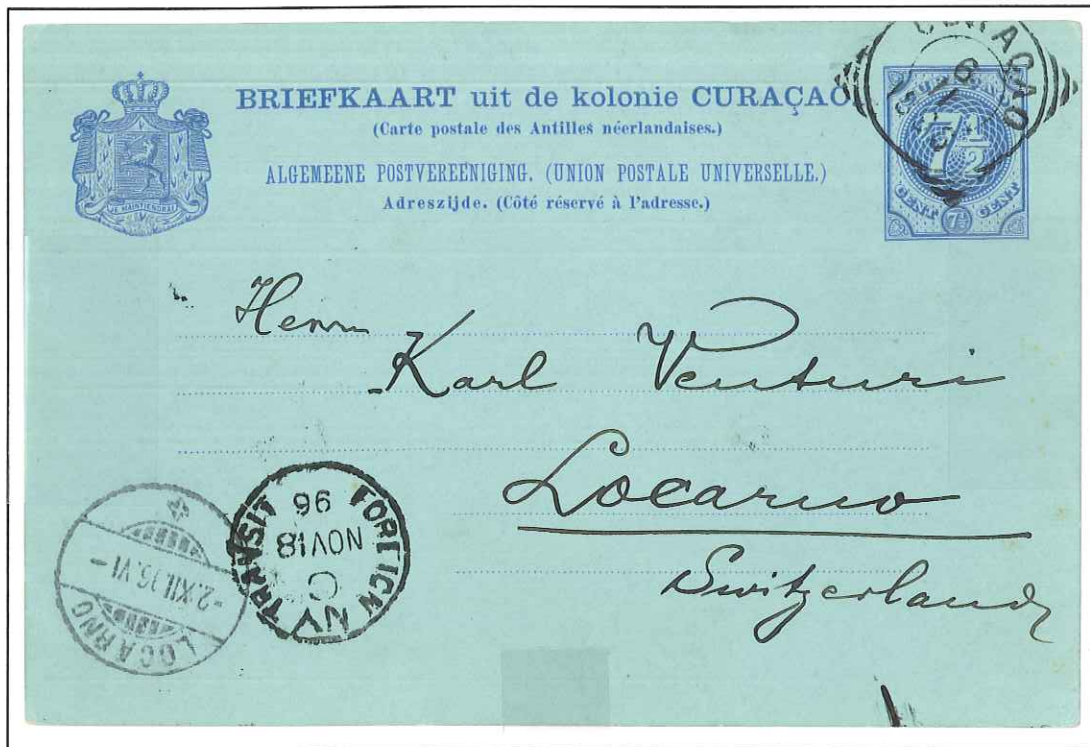 CURAÇAO
BRIEFKAART uit de kolonie CURAÇAO
(Carte postale des Antilles néerlandaises.)
ALGEMEENE POSTVEREENIGING. (UNION POSTALE UNIVERSELLE.)
Adreszijde. (Côté réservé à l'adresse.)
JE MAINTIENDRAI
7½
CENT 7½ CENT
Herrn
Karl Venturi
Locarno
Switzerland
NY FOREIGN TRANSIT
NOV 18
96
C
LOCARNO
-2.XII.96.VI-